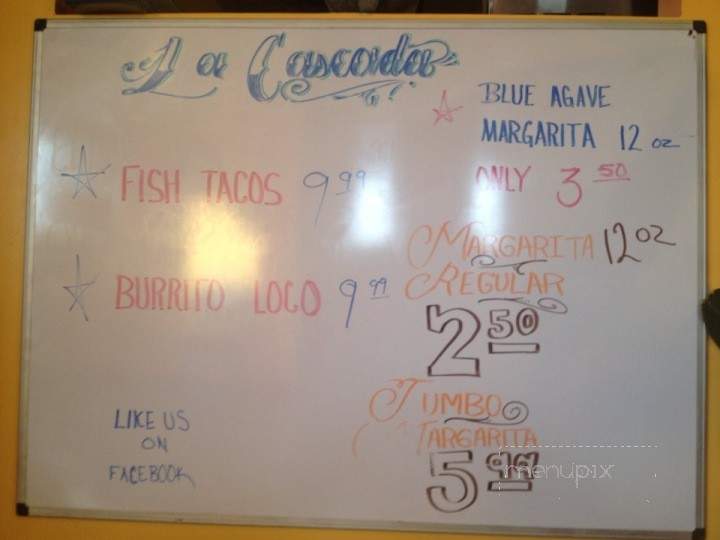 La Cascada
FISH TACOS 9.99
BURRITO LOCO 9.99
LIKE US
ON
FACEBOOK
BLUE AGAVE
MARGARITA 12 oz
ONLY 3.50
MARGARITA 12 OZ
REGULAR
2.50
JUMBO
MARGARITA
menupix